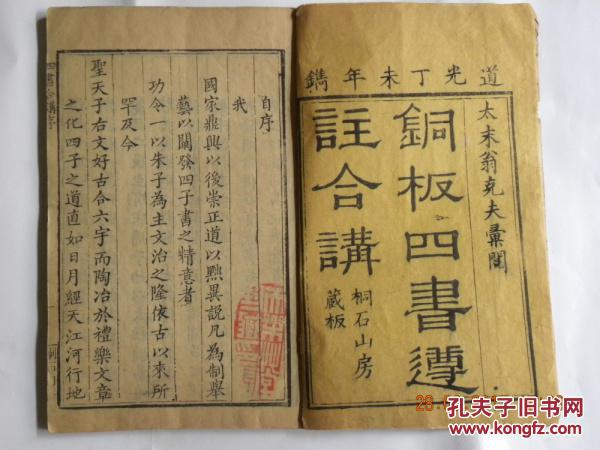 道光丁未年鐫
太末翁克夫彙閱
銅板四書遵
註合講
桐石山房
藏板
自序
我
國家鼎興以後崇正道以黜異說凡為制舉
藝以闡發四子書之精意者
功令一以朱子為主文治之隆依古以來所
罕及今
聖天子右文好古合六宇而陶冶於禮樂文章
之化四子之道直如日月經天江河行地
四書合講序
孔夫子旧书网
www.kongfz.com